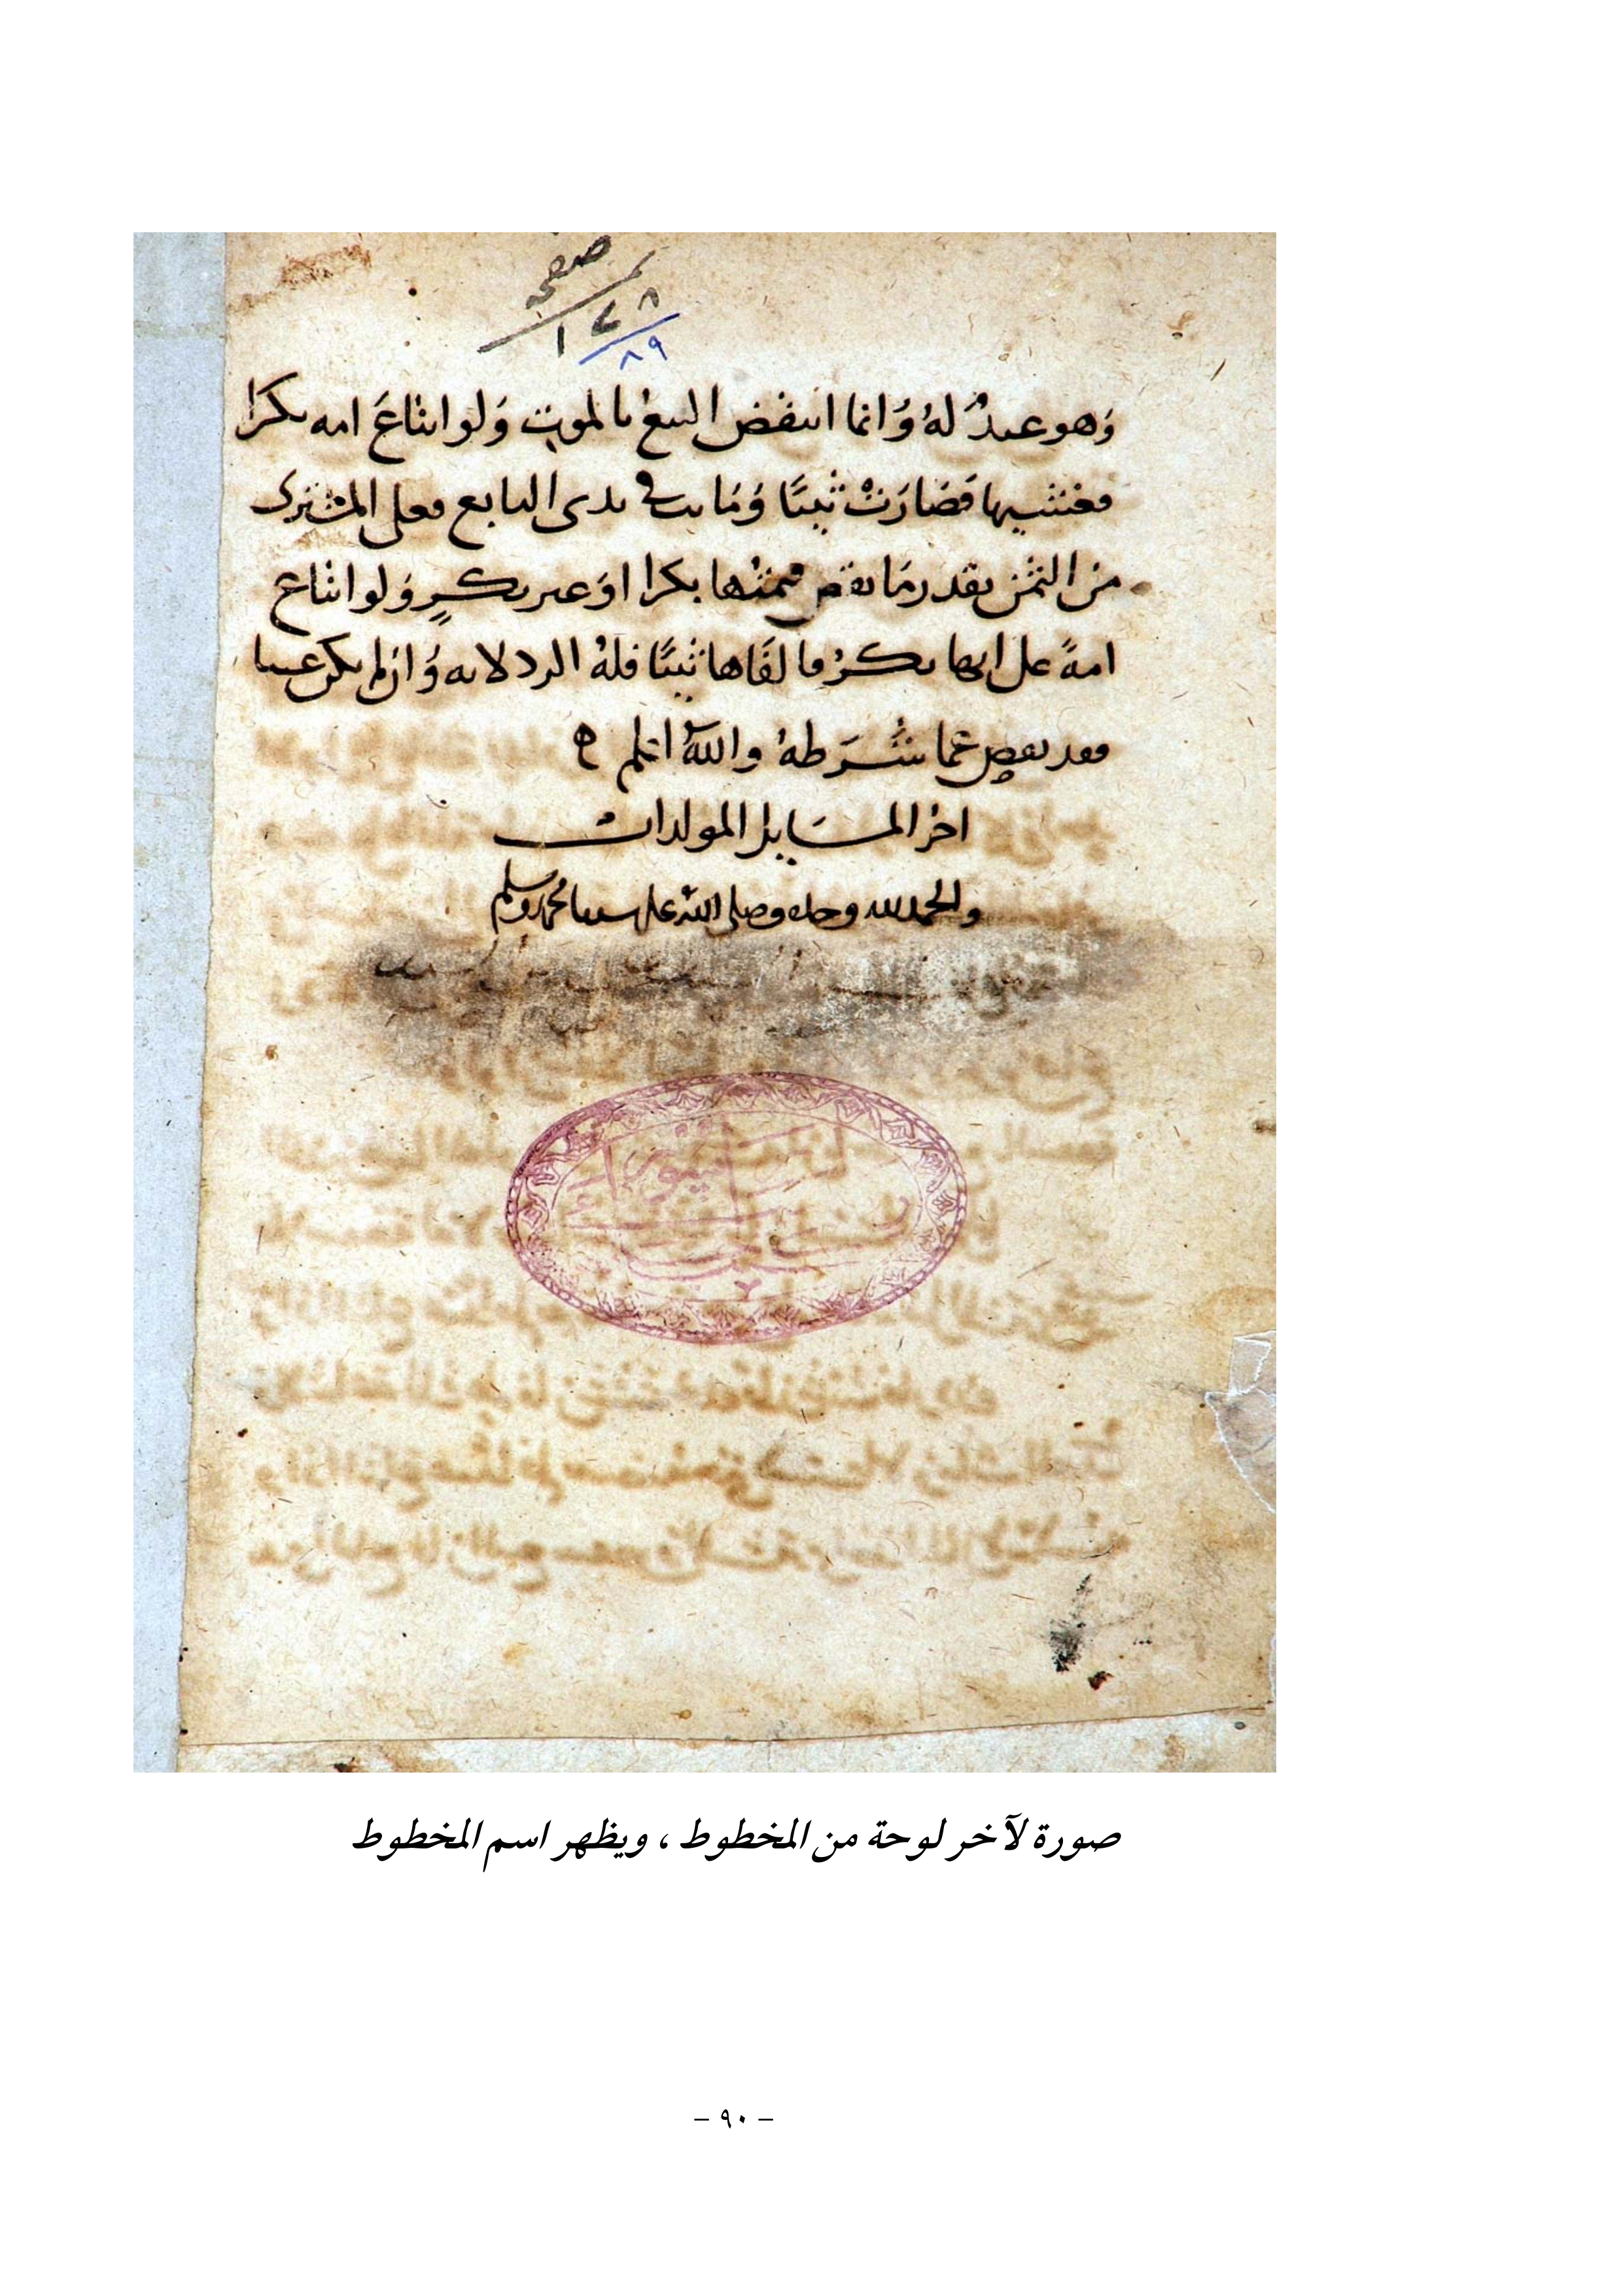 صفحه
١٧٨
٨٩
وَهو عبدٌ لهُ وَانما انتقض البيع بالموت وَلو ابتاعَ امه بكرا
فغشيها فصَارَتْ ثيبًا وَمَاتت في يدى البايع فعلى المشترى
من الثمن بقدر مَا نقص قيمتها بكرا اوَ غير بكرٍ وَلو ابتاع
امةً على انها بكرٌ فالفَاها ثيبًا فلهُ الرد لانه وَان لم يكن عيبا
فقد نقص عَما شَرَطهُ والله اعلم ه
اخر المسَايل المولدات
والحمد لله وحده وصلى الله على سيدنا محمد وسلم
صورة لآخر لوحة من المخطوط ، ويظهر اسم المخطوط
– ٩٠ –